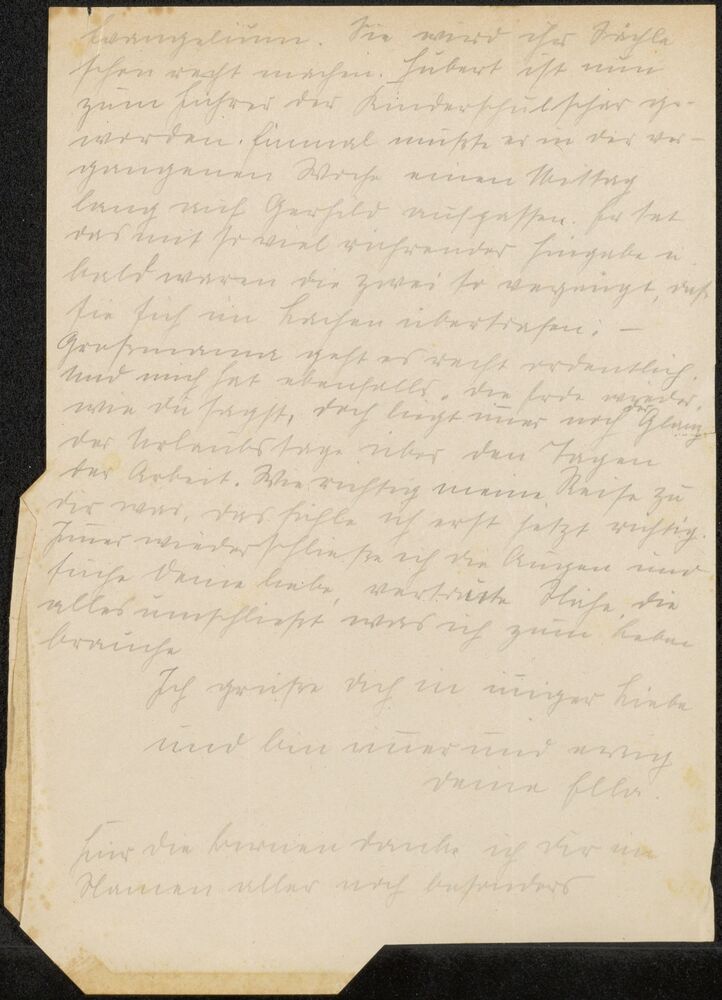 Evangelium. Sie wird ihr Sächle
schon recht machen. Hubert ist nun
zum Führer der Kinderschulschar ge-
worden. Einmal mußte er in der ver-
gangenen Woche einen Mittag
lang auf Gerhild aufpassen. Er tat
das mit so viel rührender Hingabe u.
bald waren die zwei so vergnügt, daß
sie sich im Lachen übertrafen. –
Großmama geht es recht ordentlich.
Und mich hat ebenfalls „die Erde wieder“
wie du sagst, doch liegt immer noch der Glanz
der Urlaubstage über den Tagen
der Arbeit. Wie richtig meine Reise zu
dir war, das fühle ich erst jetzt richtig.
Immer wieder schließe ich die Augen und
suche deine liebe, vertraute Nähe, die
alles umschließt was ich zum Leben
brauche
Ich grüße dich in inniger Liebe
und bin immer und ewig
deine Ella.
Für die Birnen danke ich dir im
Namen aller noch besonders